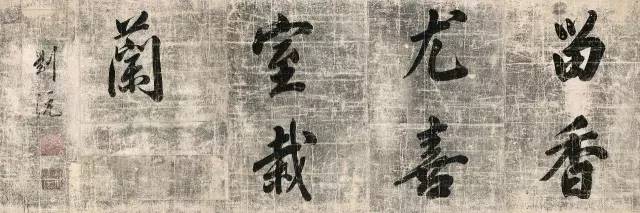 留香
尤喜
室栽
蘭
劉沅